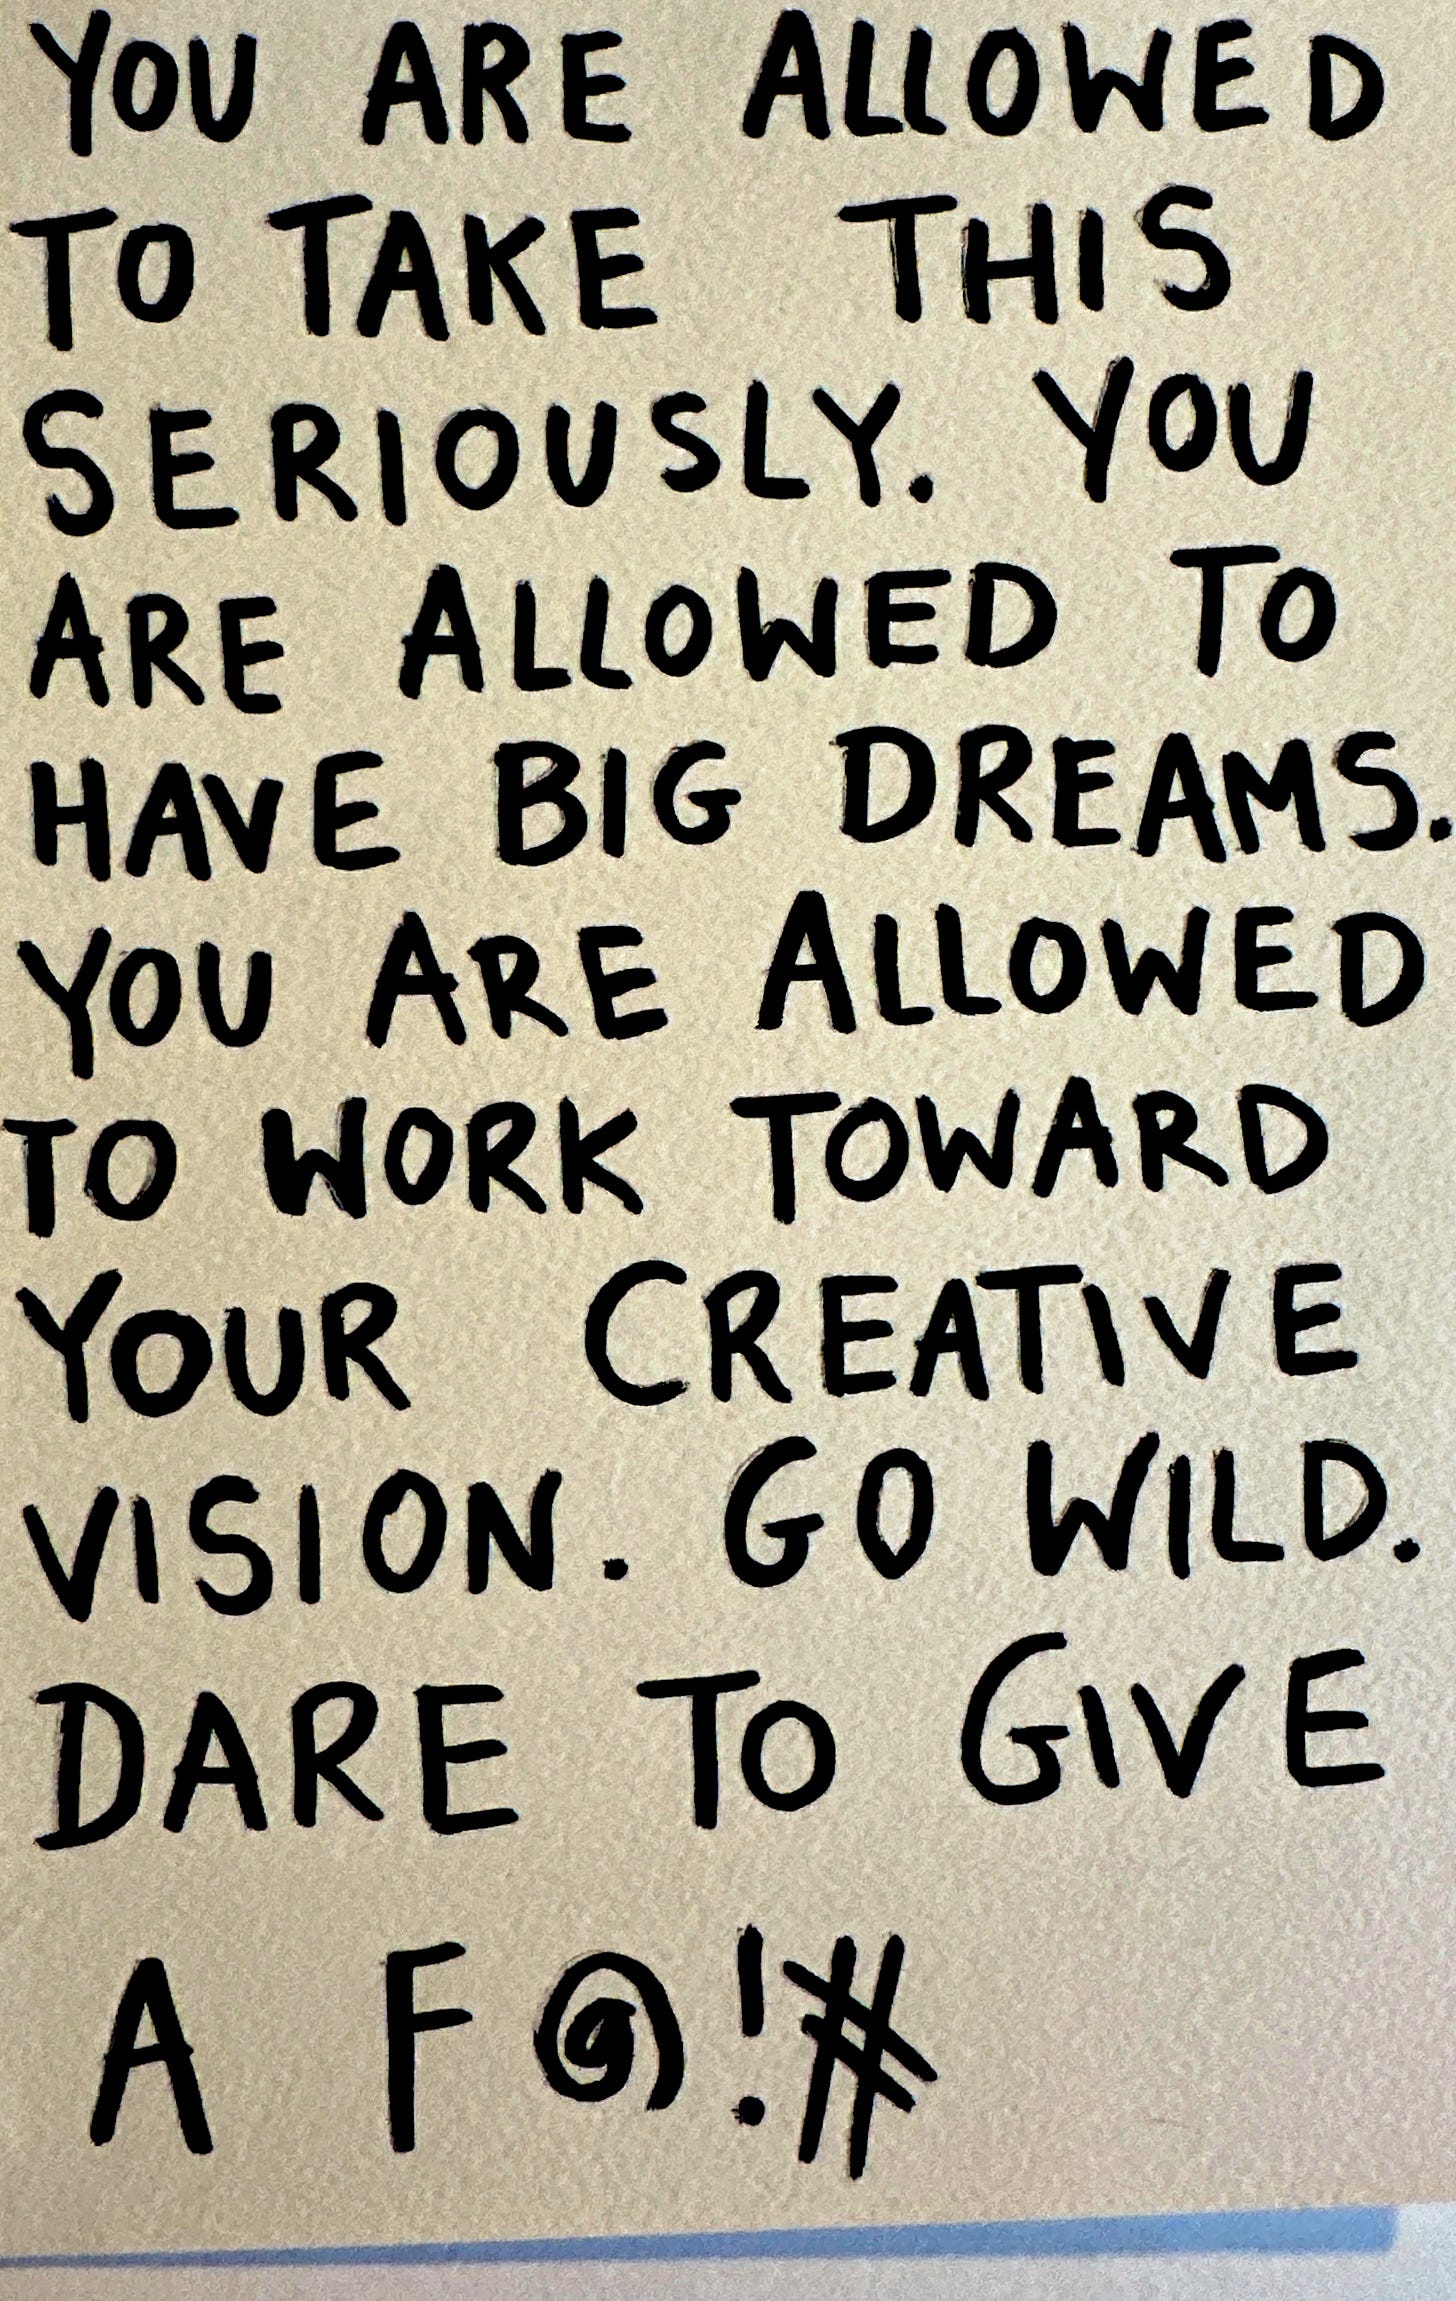 YOU ARE ALLOWED
TO TAKE THIS
SERIOUSLY. YOU
ARE ALLOWED TO
HAVE BIG DREAMS.
YOU ARE ALLOWED
TO WORK TOWARD
YOUR CREATIVE
VISION. GO WILD.
DARE TO GIVE
A F@!#